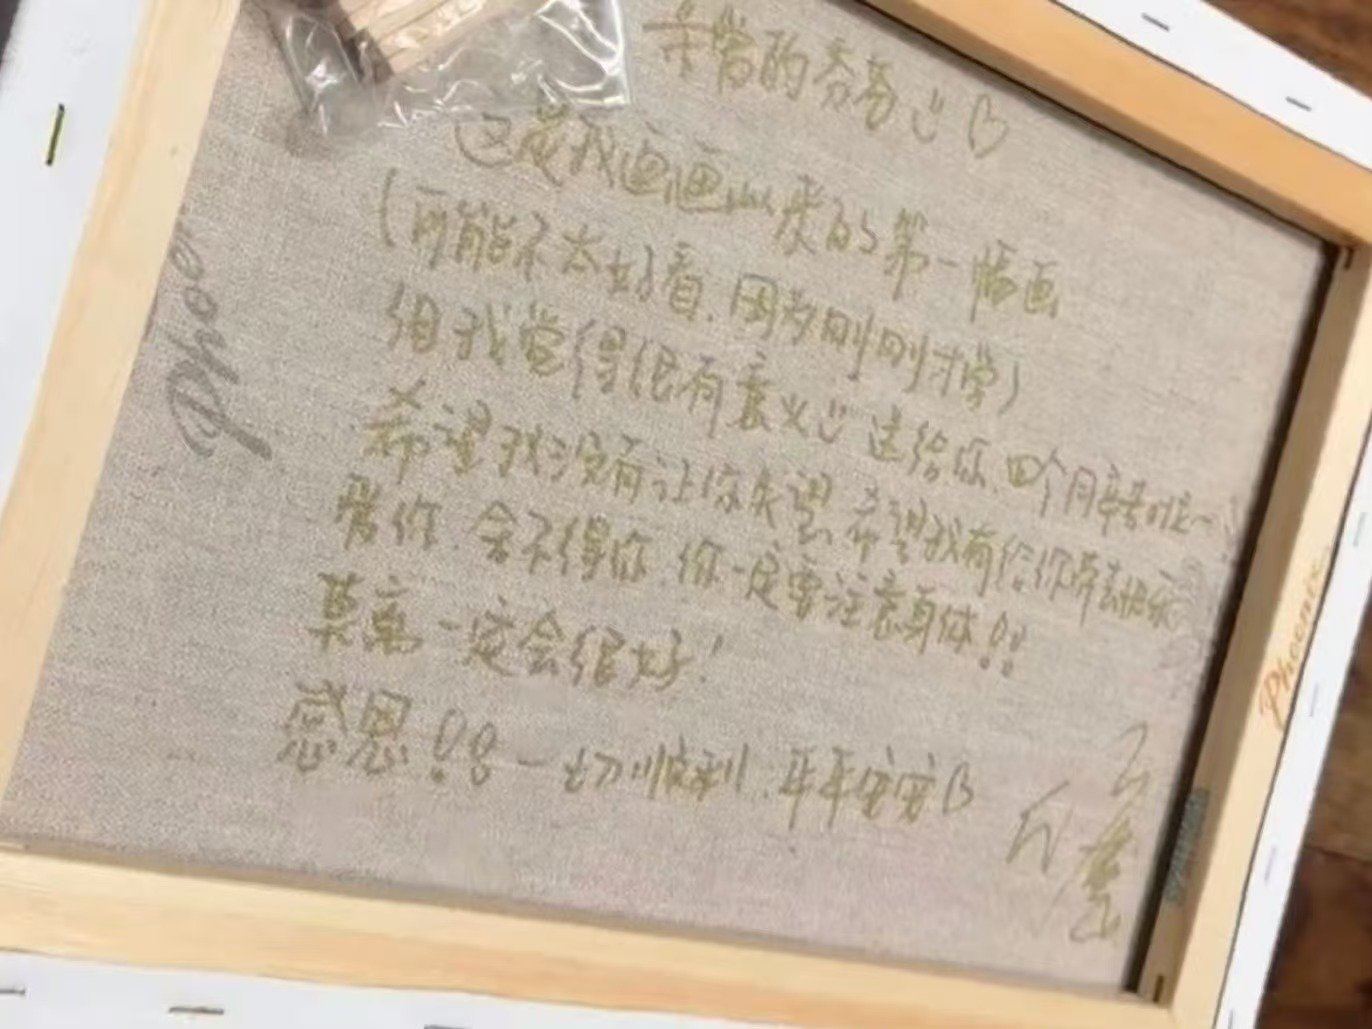 亲爱的乔乔
这是我画画以来的第一幅画
(可能不太好看.因为刚刚才学)
但我觉得很有意义 送给你.四个月辛苦啦~
希望我没有让你失望,希望我有给你带去快乐
爱你.舍不得你.你一定要注意身体!!
莫离一定会很好!
感恩!!一切顺利.平平安安
Phoe
Phoenix